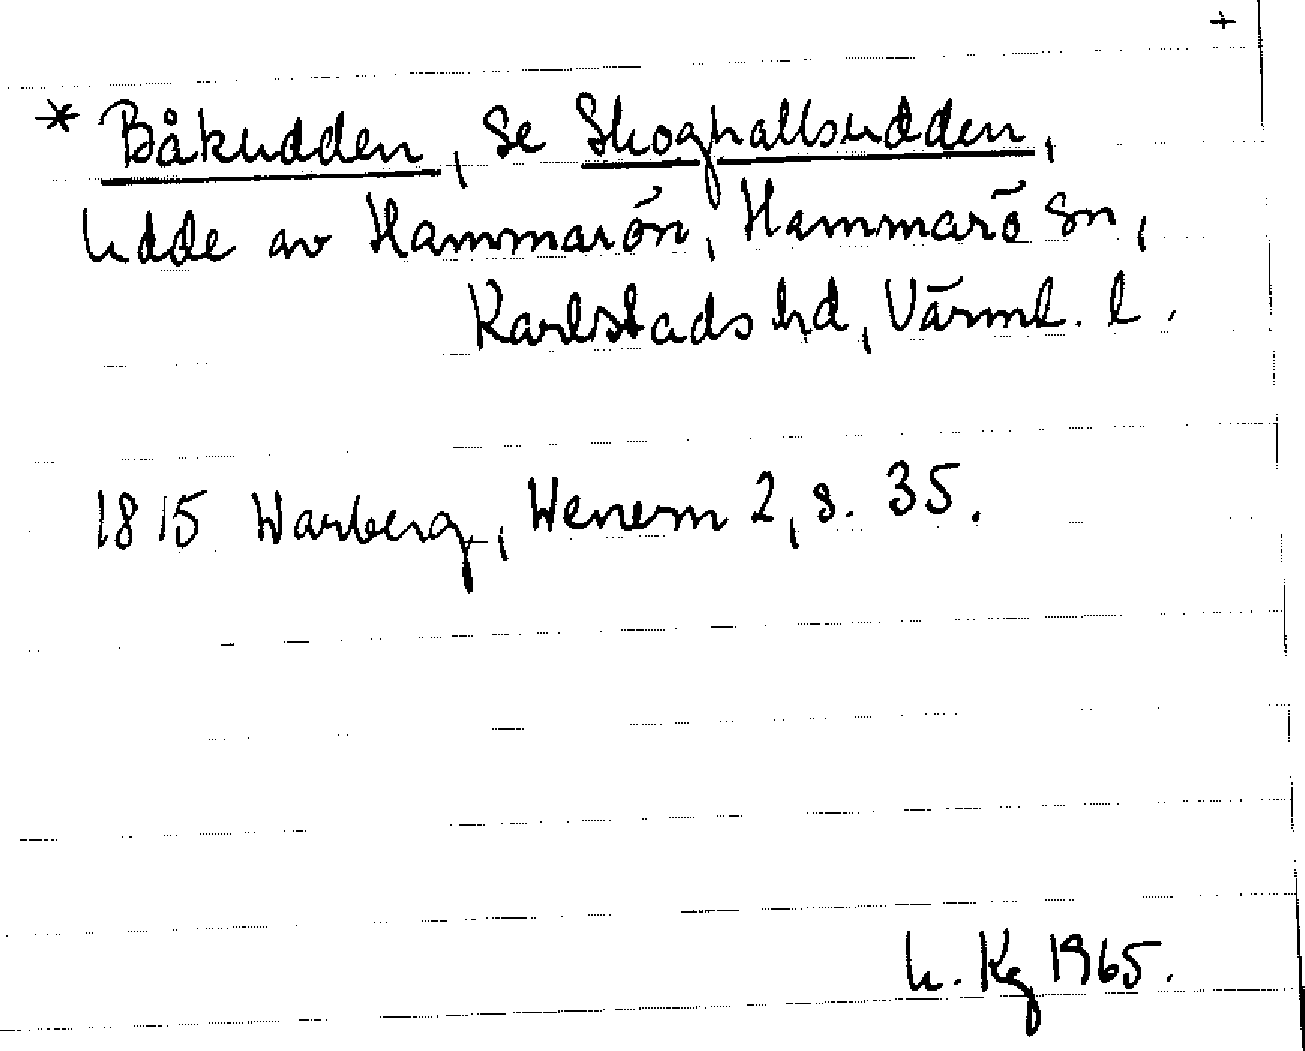 +
* Båkudden, se Skoghallsudden,
udde av Hammarön, Hammarö sn,
Karlstads hd, Värml. l.
1815 Warberg, Wenern 2, s. 35.
L. Kg 1965.